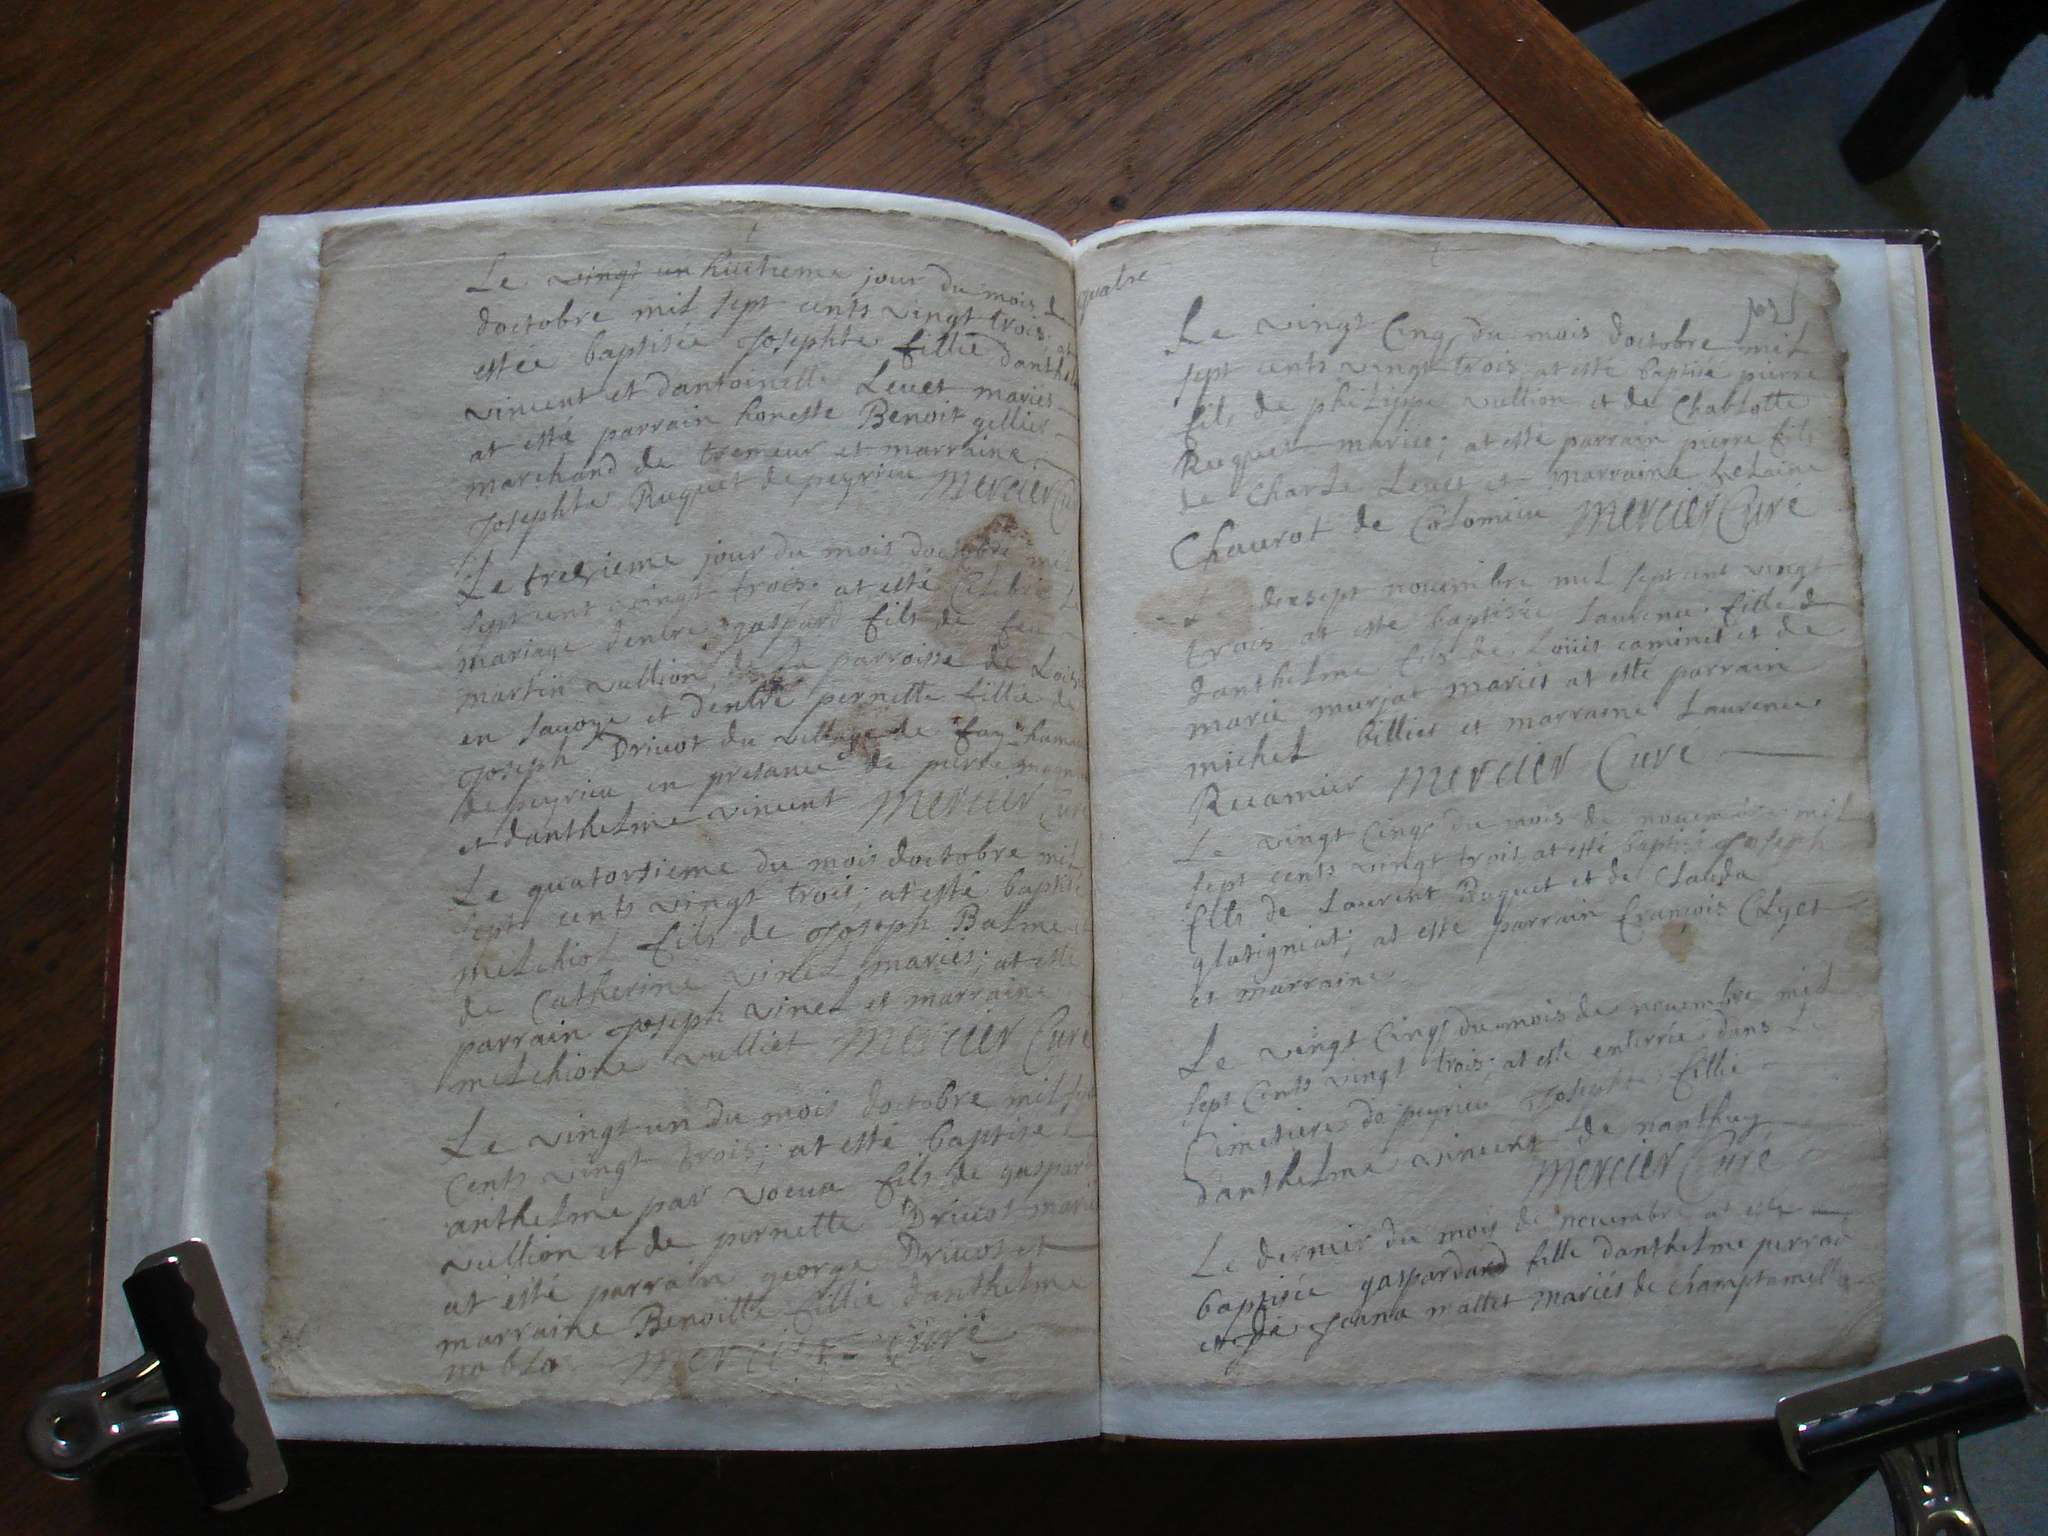 Le vingt un huitieme jour du mois d
doctobre mil sept cents vingt trois, at
estée baptisée Josephte fillie danthelm
vincent et dantoinette Levet mariés
at esté parrain honeste Benoit gellier
marchand de tremeur et marraine
Josephte Ruquet de peyrieu Mercier Cu
Le trezieme jour du mois doctobre mil
sept cent vingt trois at esté Celebré Le
mariage dentre gaspard fils de feu
martin vullion de La parroisse de
en Savoye et dentre pernette fillie de
Joseph Drivot du village de fay hame
de peyrieu en presance de pierre
et danthelme vincent Mercier Curé
Le quatorsieme du mois doctobre mil
sept cents vingt trois, at esté baptisé
melchiol fils de Joseph Balme et
de Catherine vinel mariés; at esté
parrain Joseph vinel et marraine
melchione vulliet Mercier Curé
Le vingt un du mois doctobre mil sept
Cents vingt trois; at esté baptisé
anthelme par voeua fils de gaspard
vullion et de pernette Drivot mariés
at esté parrain george Drivot et
marraine Benoitte fillie danthelme
nobla Mercier Curé
quatre
Le vingt Cinq du mois doctobre mil
sept cents vingt trois at esté baptisé pierre
fils de philippe vullion et de Charlotte
Ruquet mariés; at esté parrain pierre fils
de Charle Levet et marraine heLaine
Chaurot de Colomieu Mercier Curé
Le dixsept novembre mil sept cent vingt
trois at esté baptisée Laurence fille d
danthelme fils de Loüis caminet et de
marie murjat mariés at esté parrain
michel billiet et marraine Laurence
Recamier Mercier Curé
Le vingt Cinq du mois de novembre mil
sept cents vingt trois at esté baptisé Joseph
fils de Laurent Ruquet et de Clauda
glatigniat; at esté parrain françois Clyet
et marraine
Le vingt Cinq du mois de novembre mil
sept Cents vingt trois; at esté enterrée dans Le
Cimetiere de peyrieu Josephte fillie
danthelme vincent de nanthuy
Mercier Curé
Le dernier du mois de novembre at esté
baptisée gaspardard fille danthelme perrad
et de Jeanna mallet mariés de champtamelle